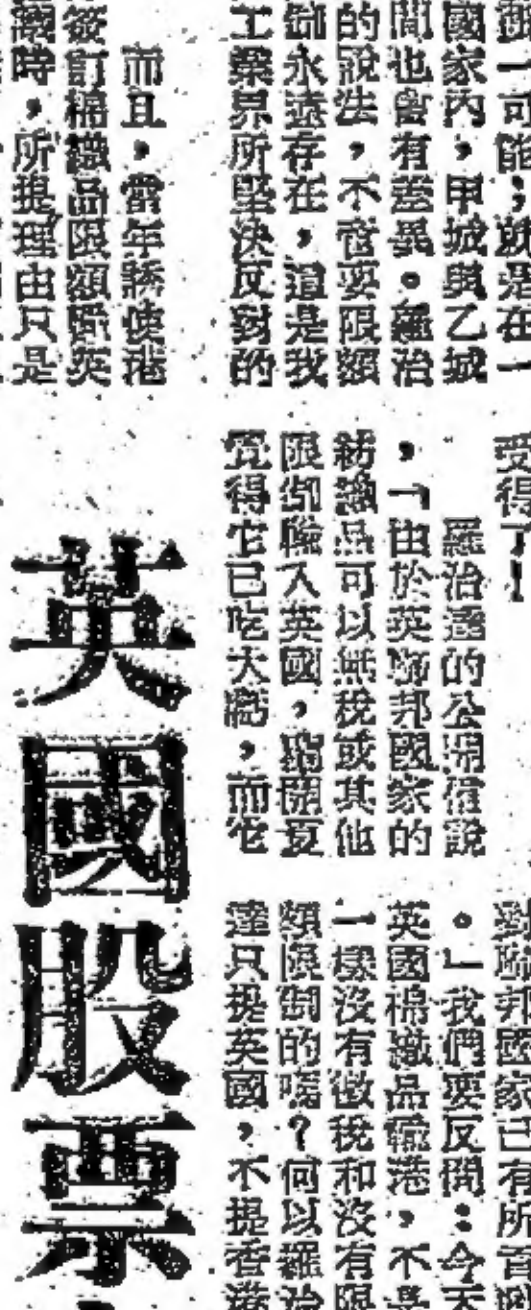 一可能,就是在一
國家內,甲城與乙城
間也會有差異。羅治
的說法,不啻要限額
制永遠存在,這是我
工業界所堅決反對的
而且,當年誘使港
簽訂棉織品限額輸英
時,所提理由只是
受得了!
羅治達的公開信說
,「由於英聯邦國家的
紡織品可以無稅或其他
限制輸入英國,蘭開夏
覺得它已吃大虧,而它
對聯邦國家已有所
。」我們要反問:今天
英國棉織品輸港,不是
一樣沒有徵稅和沒有限
額限制的嗎?何以羅治
達只提英國,不提香港
英國股票